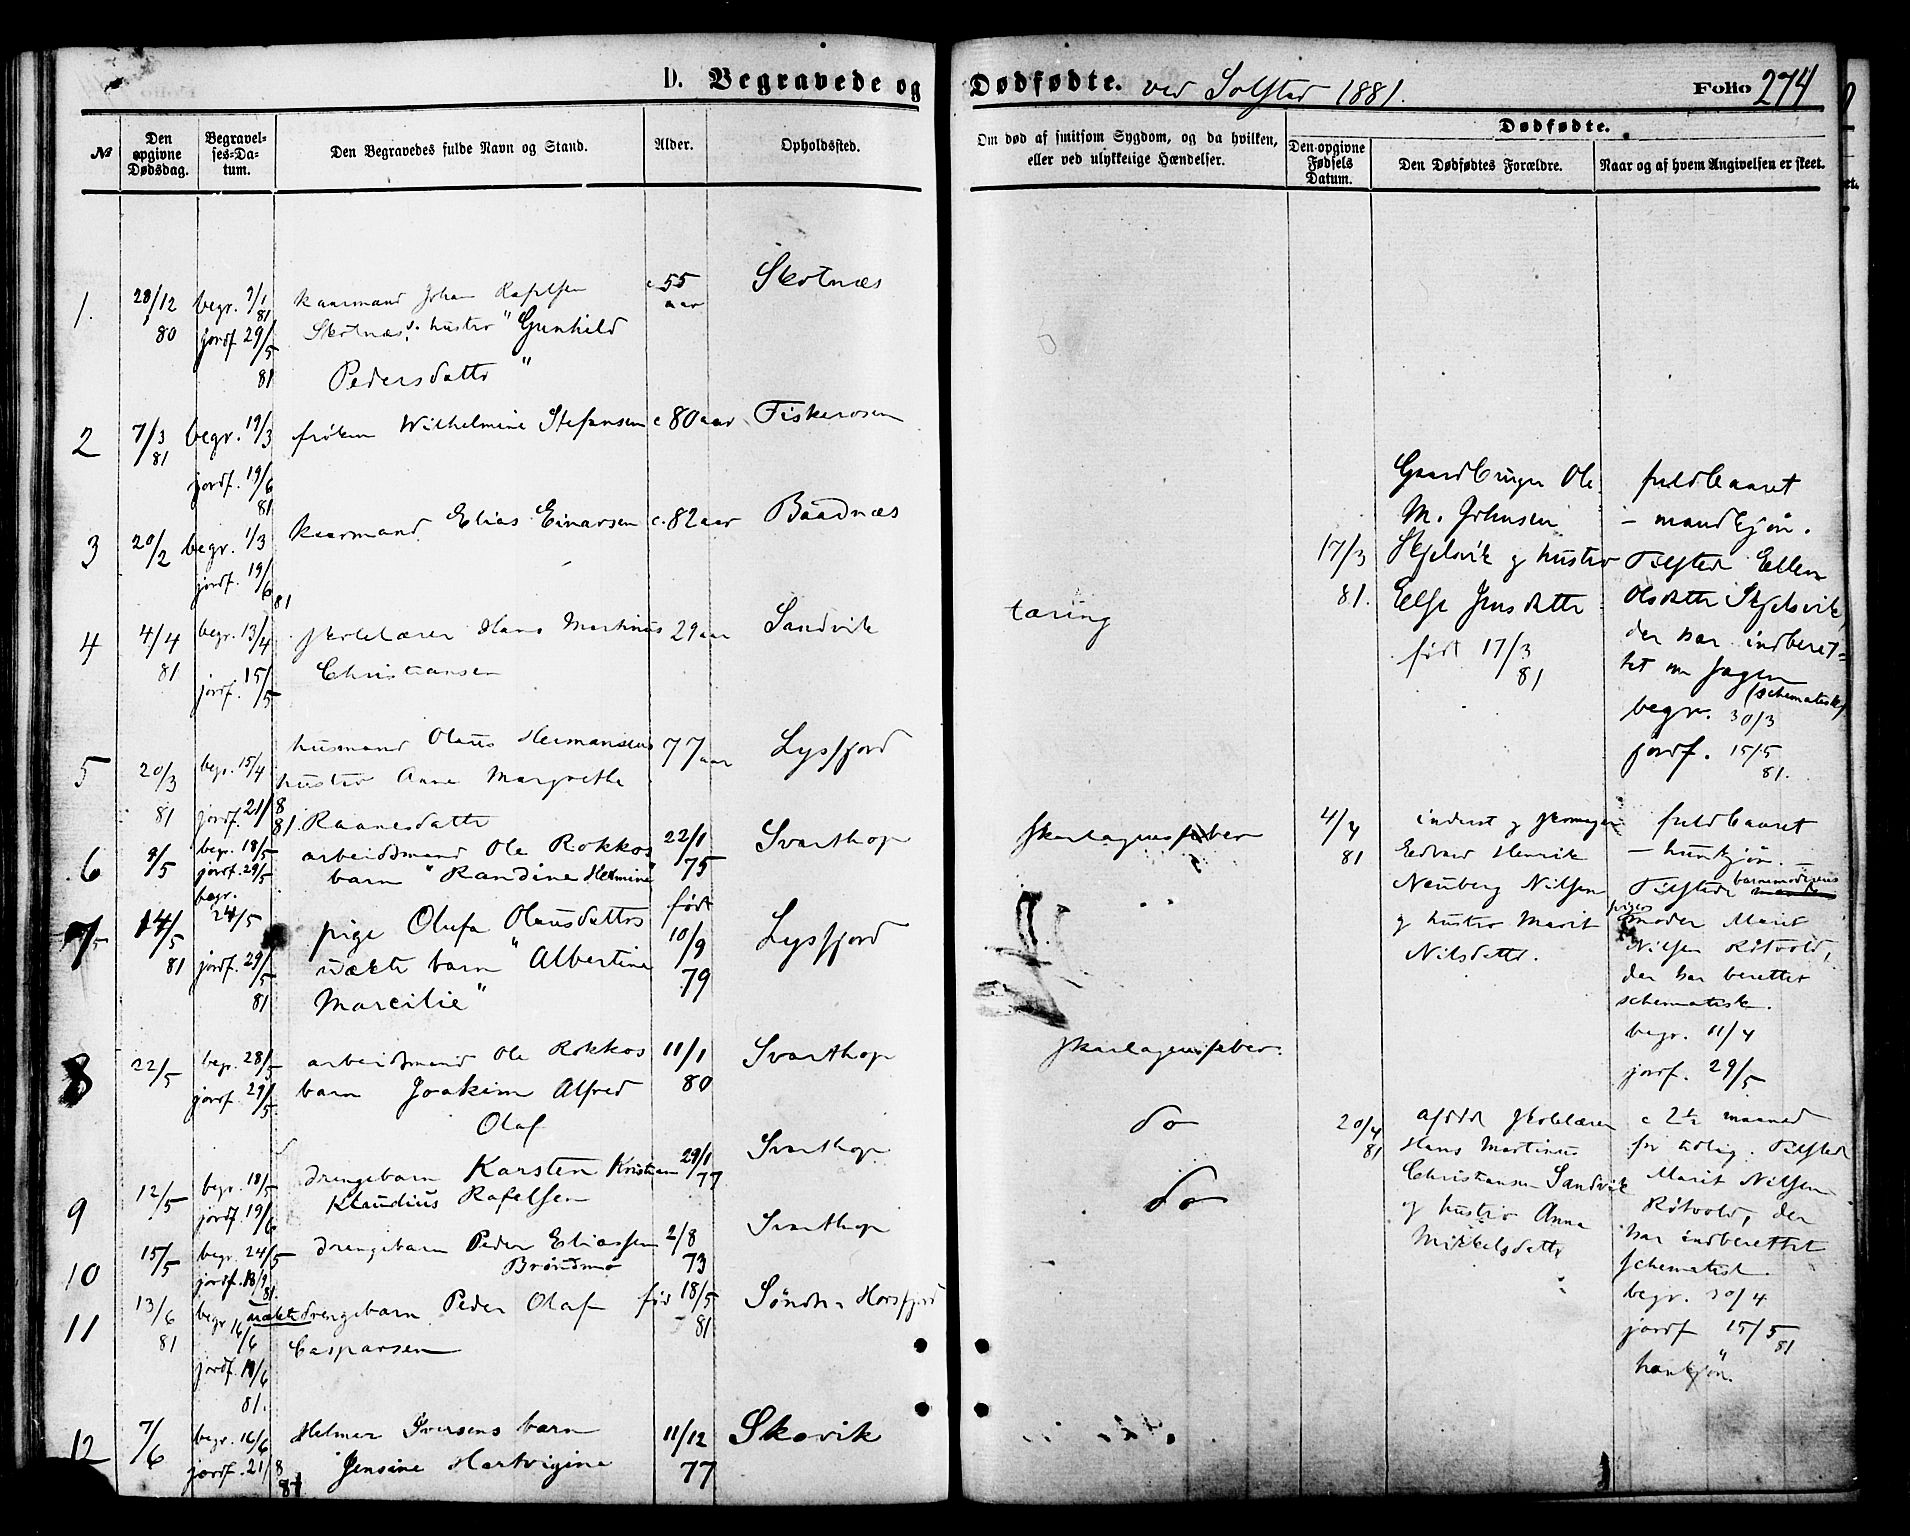 D. Begravede og Dødfødte. ved Solstad 1881. Folio 274
№
Den opgivne Dødsdag.
Begravelses-Datum.
Den Begravedes fulde Navn og Stand.
Alder.
Opholdssted.
Om død af smitsom Sygdom, og da hvilken, eller ved ulykkelige Hændelser.
Dødfødte.
Den opgivne Fødsels Datum.
Den Dødfødtes Forældre.
Naar og af hvem Angivelsen er skeet.
1. 28/12 80 begr. 7/1 81 jordf 29/5 81
kaarmand Johan Rafelsen
Skotnæs's hustro "Gunhild
Pedersdatter"
c 55 aar
Skotnæs
2 7/3 81 begr. 19/3 jordf. 19/6 81
frøken Wilhelmine Stefansen
c 80 aar
Fiskerosen
3 20/2 begr. 1/3 jordf. 19/6 81
kaarmand Elias Einarsen
c. 82 aar
Baadnæs
4 4/4 81 begr. 13/4 jordf. 15/5
skolelærer Hans Martinus
Christiansen
29 aar
Sandvik
tæring
5 20/3 81 begr. 15/4 jordf. 21/8 81.
husmand Olaus Hermansens
hustro Anne Margrethe
Raanesdatter
77 aar
Lysfjord
6 9/5 begr. 18/5 jordf. 29/5
arbeidsmand Ole Rokkos
barn "Randine Hermine"
22/1 75
Svarthop
skarlagensfeber
7 14/5 81 begr. 24/5 jordf. 29/5 81
pige Olufa Olausdatters
uækte barn "Albertine
Marcilie"
født 10/9 79
Lysfjord
8 22/5 begr. 28/5 jordf. 29/5
arbeidsmand Ole Rokkos
barn Joakim Alfred
Olaf
11/1 80
Svarthop
skarlagensfeber.
9 12/5 begr. 18/5 jordf. 19/6
drengebarn Karsten Kristian
Klaudius Rafelsen
29/1 77
Svarthop
do
10 15/5 begr. 24/5 jordf. 18/9 81.
drengebarn Peder Eliassen
Brøndmo
2/8 73
Svarthop
do
11 13/6 81 begr 16/6 jordf. 19/6 81.
uækte drengebarn Peder Olaf
Casparsen
fød 18/5 81
Søndre Horsfjord
12 7/6 begr. 16/6 jordf. 21/8 81
Helmer Iversens barn
Jensine Hartvigine
11/12 77
Skavik
17/3 81.
Gaardbruger Ole
M. Johnsen
Skjelsvik og hustro
Else Jensdatter
født 17/3 81
fuldbaaret
– mandkjøn.
Tilsted Ellen
Olsdatter Skjelsvik,
der har indberet=
tet om sagen
(schematisk)
begr. 30/3
jordf. 15/5 81.
4/4 81
inderst og skomager
Edvard Henrik
Neuberg Nilsen
og hustro Marit
Nilsdatter.
fuldbaaret
– hunkjøn. –
Tilstede barnemoderens
moder Marit
Nilsen Røtvold,
der har berettet
schematisk.
begr. 11/4
jordf. 29/5
20/4 81
afdøde skolelærer
Hans Martinus
Christiansen Sandvik
og hustro Anna
Mikkelsdatter
c 2½ maaned
for tidlig. Tilsted
Marit Nilsen
Røtvold, der
har indberettet
schematisk.
begr. 30/4
jordf 15/5 81
hankjøn.